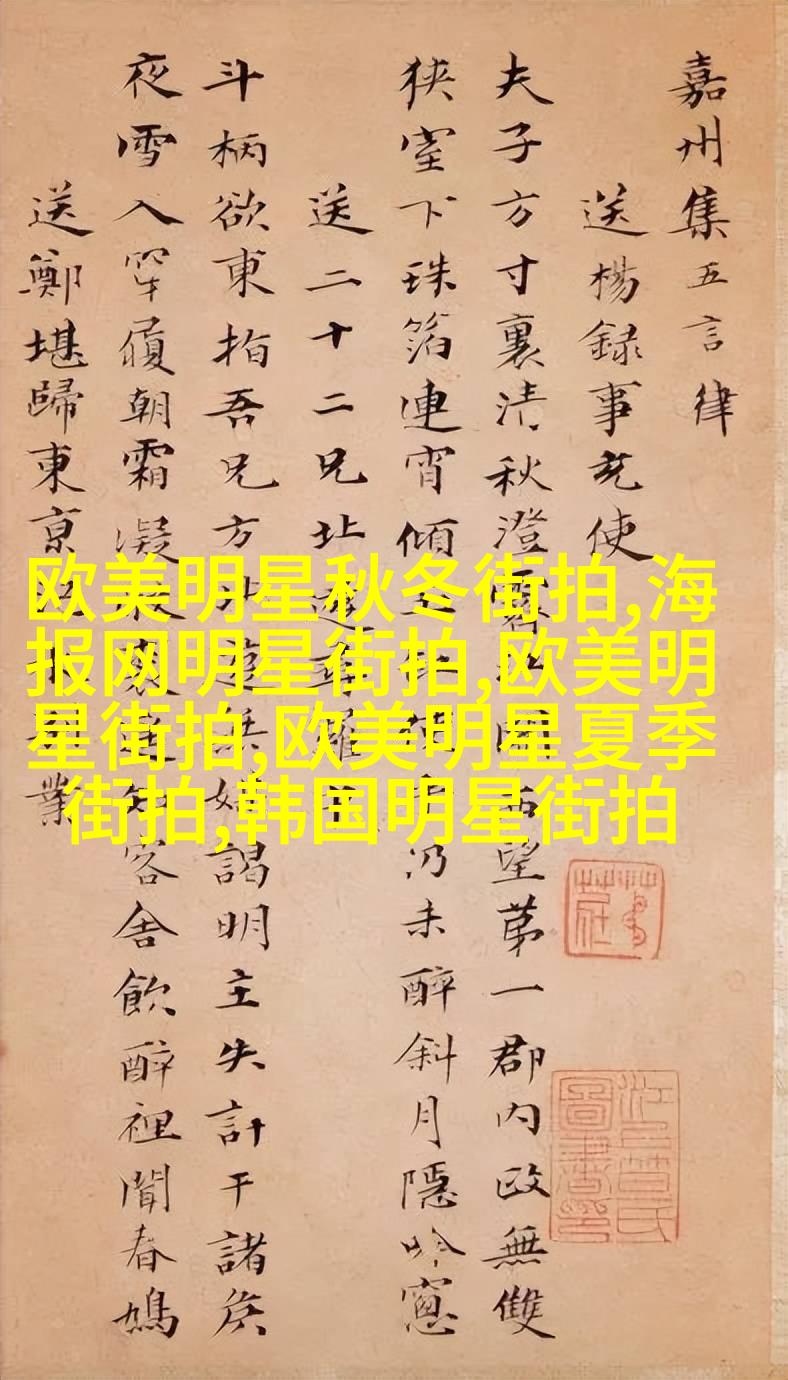 嘉州集五言律
送楊録事充使
夫子方寸裏清秋澄霽江關西望第一郡内政無雙
狹室下珠箔連宵傾玉使乎仍未醉斜月隱吟窓
送二十二兄北遊尋羅
斗柄欲東指吾兄方北遊無媒謁明主失計干諸侯
夜雪入穿履朝霜凝裘遥知客舍飲醉裡聞春鳩
送鄭堪歸東京業
欧美明星秋冬街拍,海
报网明星街拍,欧美明
星街拍,欧美明星夏季
街拍,韩国明星街拍